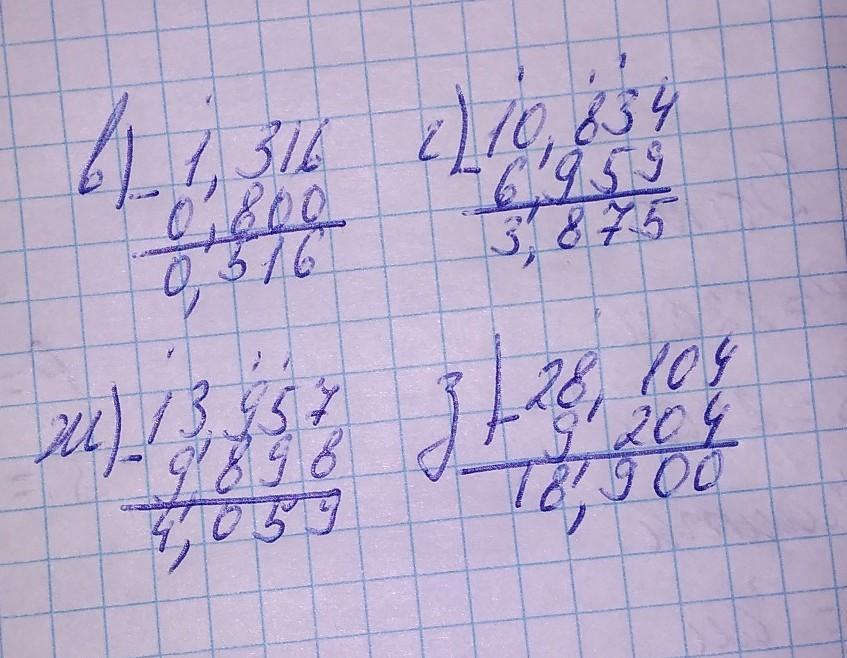 в) - 1,316
0,800
0,516
е) - 10,834
6,959
3,875
ж) - 13,957
9,898
4,059
з) - 28,104
9,204
18,900